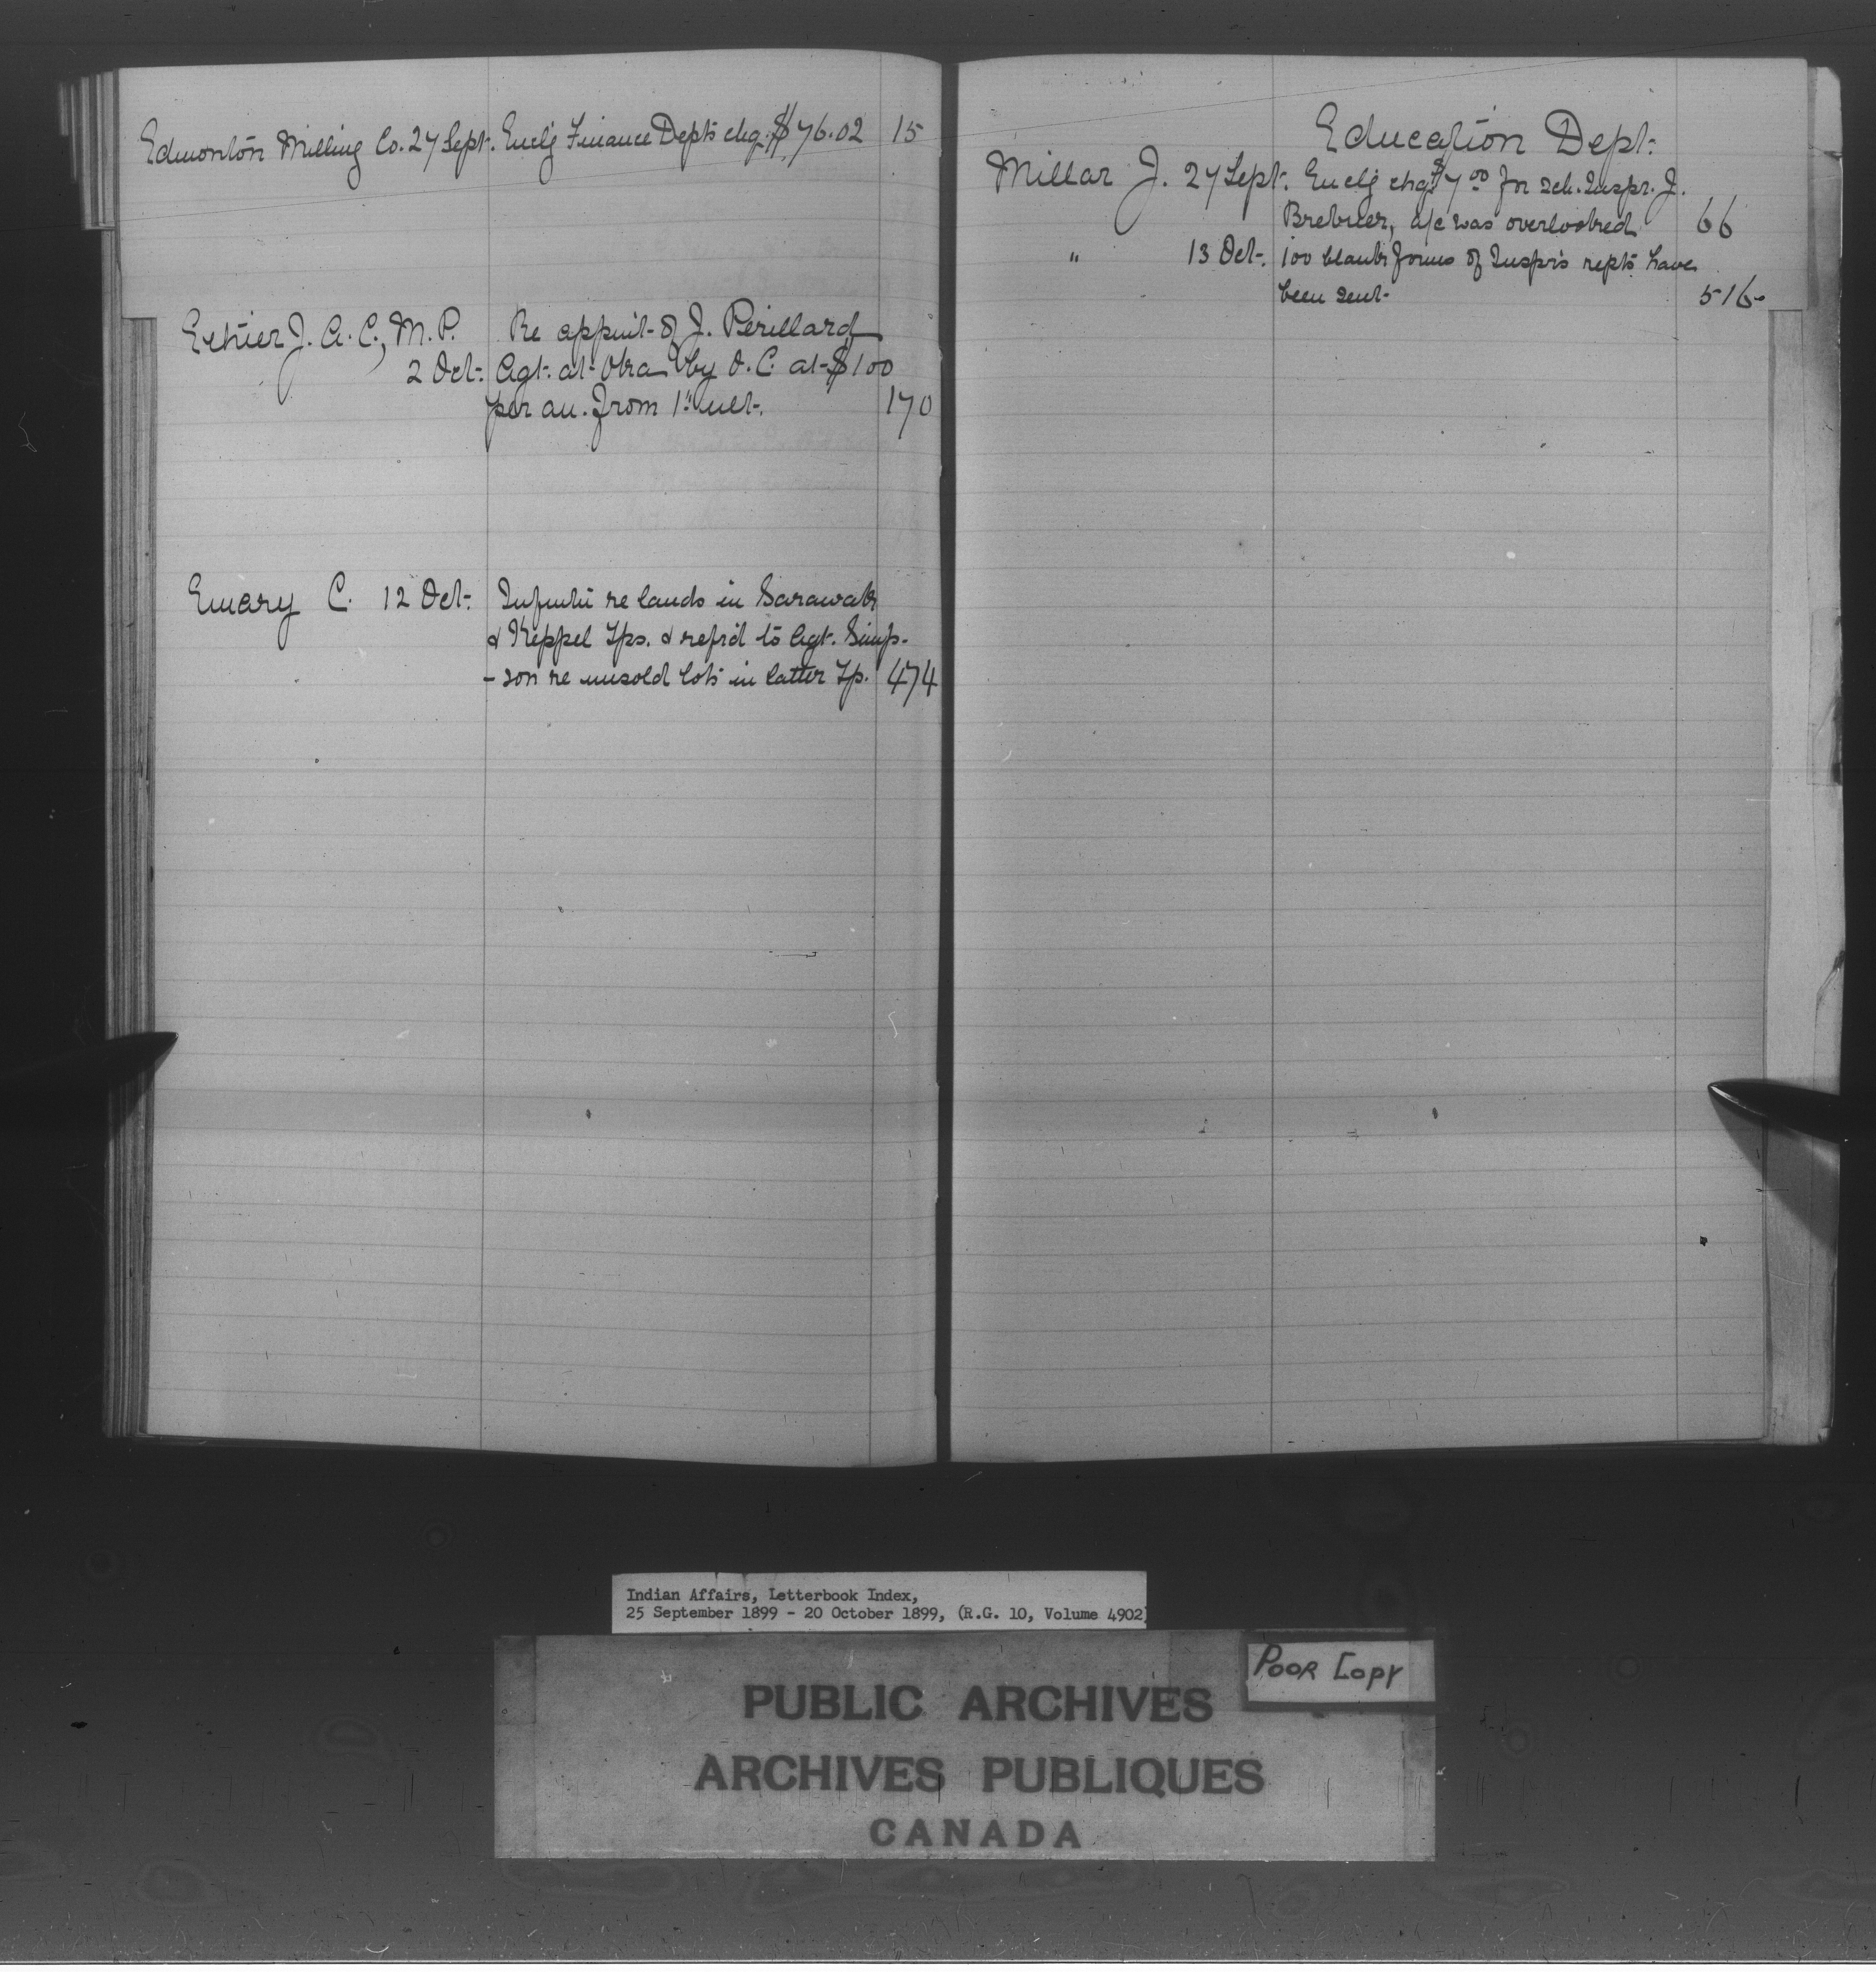 Edmonton Milling Co. 27 Sept. Enclg Finance Depts chq. $76.02 15
Ethier J. A. C., M. P. Re appmt of J. Perillard
2 Oct. Agt. at Oka by O. C. at $100
per an. from 1st ult. 170
Emary C. 12 Oct. Infmtn re lands in Sarawak
& Keppel Tps. & refrd to Agt. Simp-
-son re unsold lots in latter Tp. 474
Education Dept.
Millar J. 27 Sept. Enclg chq $7.00 for sch. Inspr. J.
Brebner, a/c was overlooked 66
" 13 Oct. 100 blank forms of Inspr's repts have
been sent. 516
Indian Affairs, Letterbook Index,
25 September 1899 - 20 October 1899, (R.G. 10, Volume 4902)
POOR COPY
PUBLIC ARCHIVES
ARCHIVES PUBLIQUES
CANADA